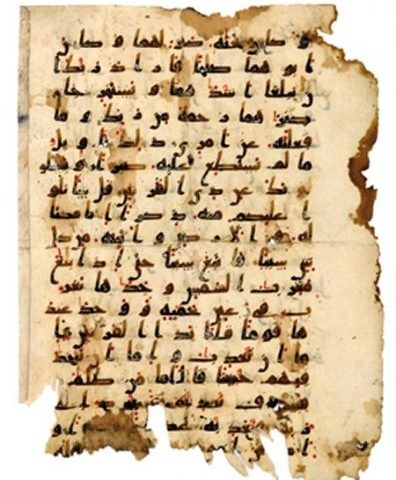 و كان تحته كنز لهما و كان
ابو هما صلحا فاراد ربك ا
ن يبلغا اشد هما و يستخر جا
كنز هما رحمة من ربك و ما
فعلته عن امري ذلك تاو يل
ما لم تسطع عليه صبرا و يسلو
نك عن ذي القرنين قل ساتلو
ا عليكم منه ذكرا انا مكنا
له في الارض و اتينه من كل
شي سببا فاتبع سببا حتى اذا بلغ
مغرب الشمس وجدها تغر
ب في عين حمية و وجد عند
ها قوما قلنا يذا القرنين ا
ما ان تعذب و اما ان تتخذ
فيهم حسنا قال اما من ظلم
فسوف نعذبه ثم يرد الى